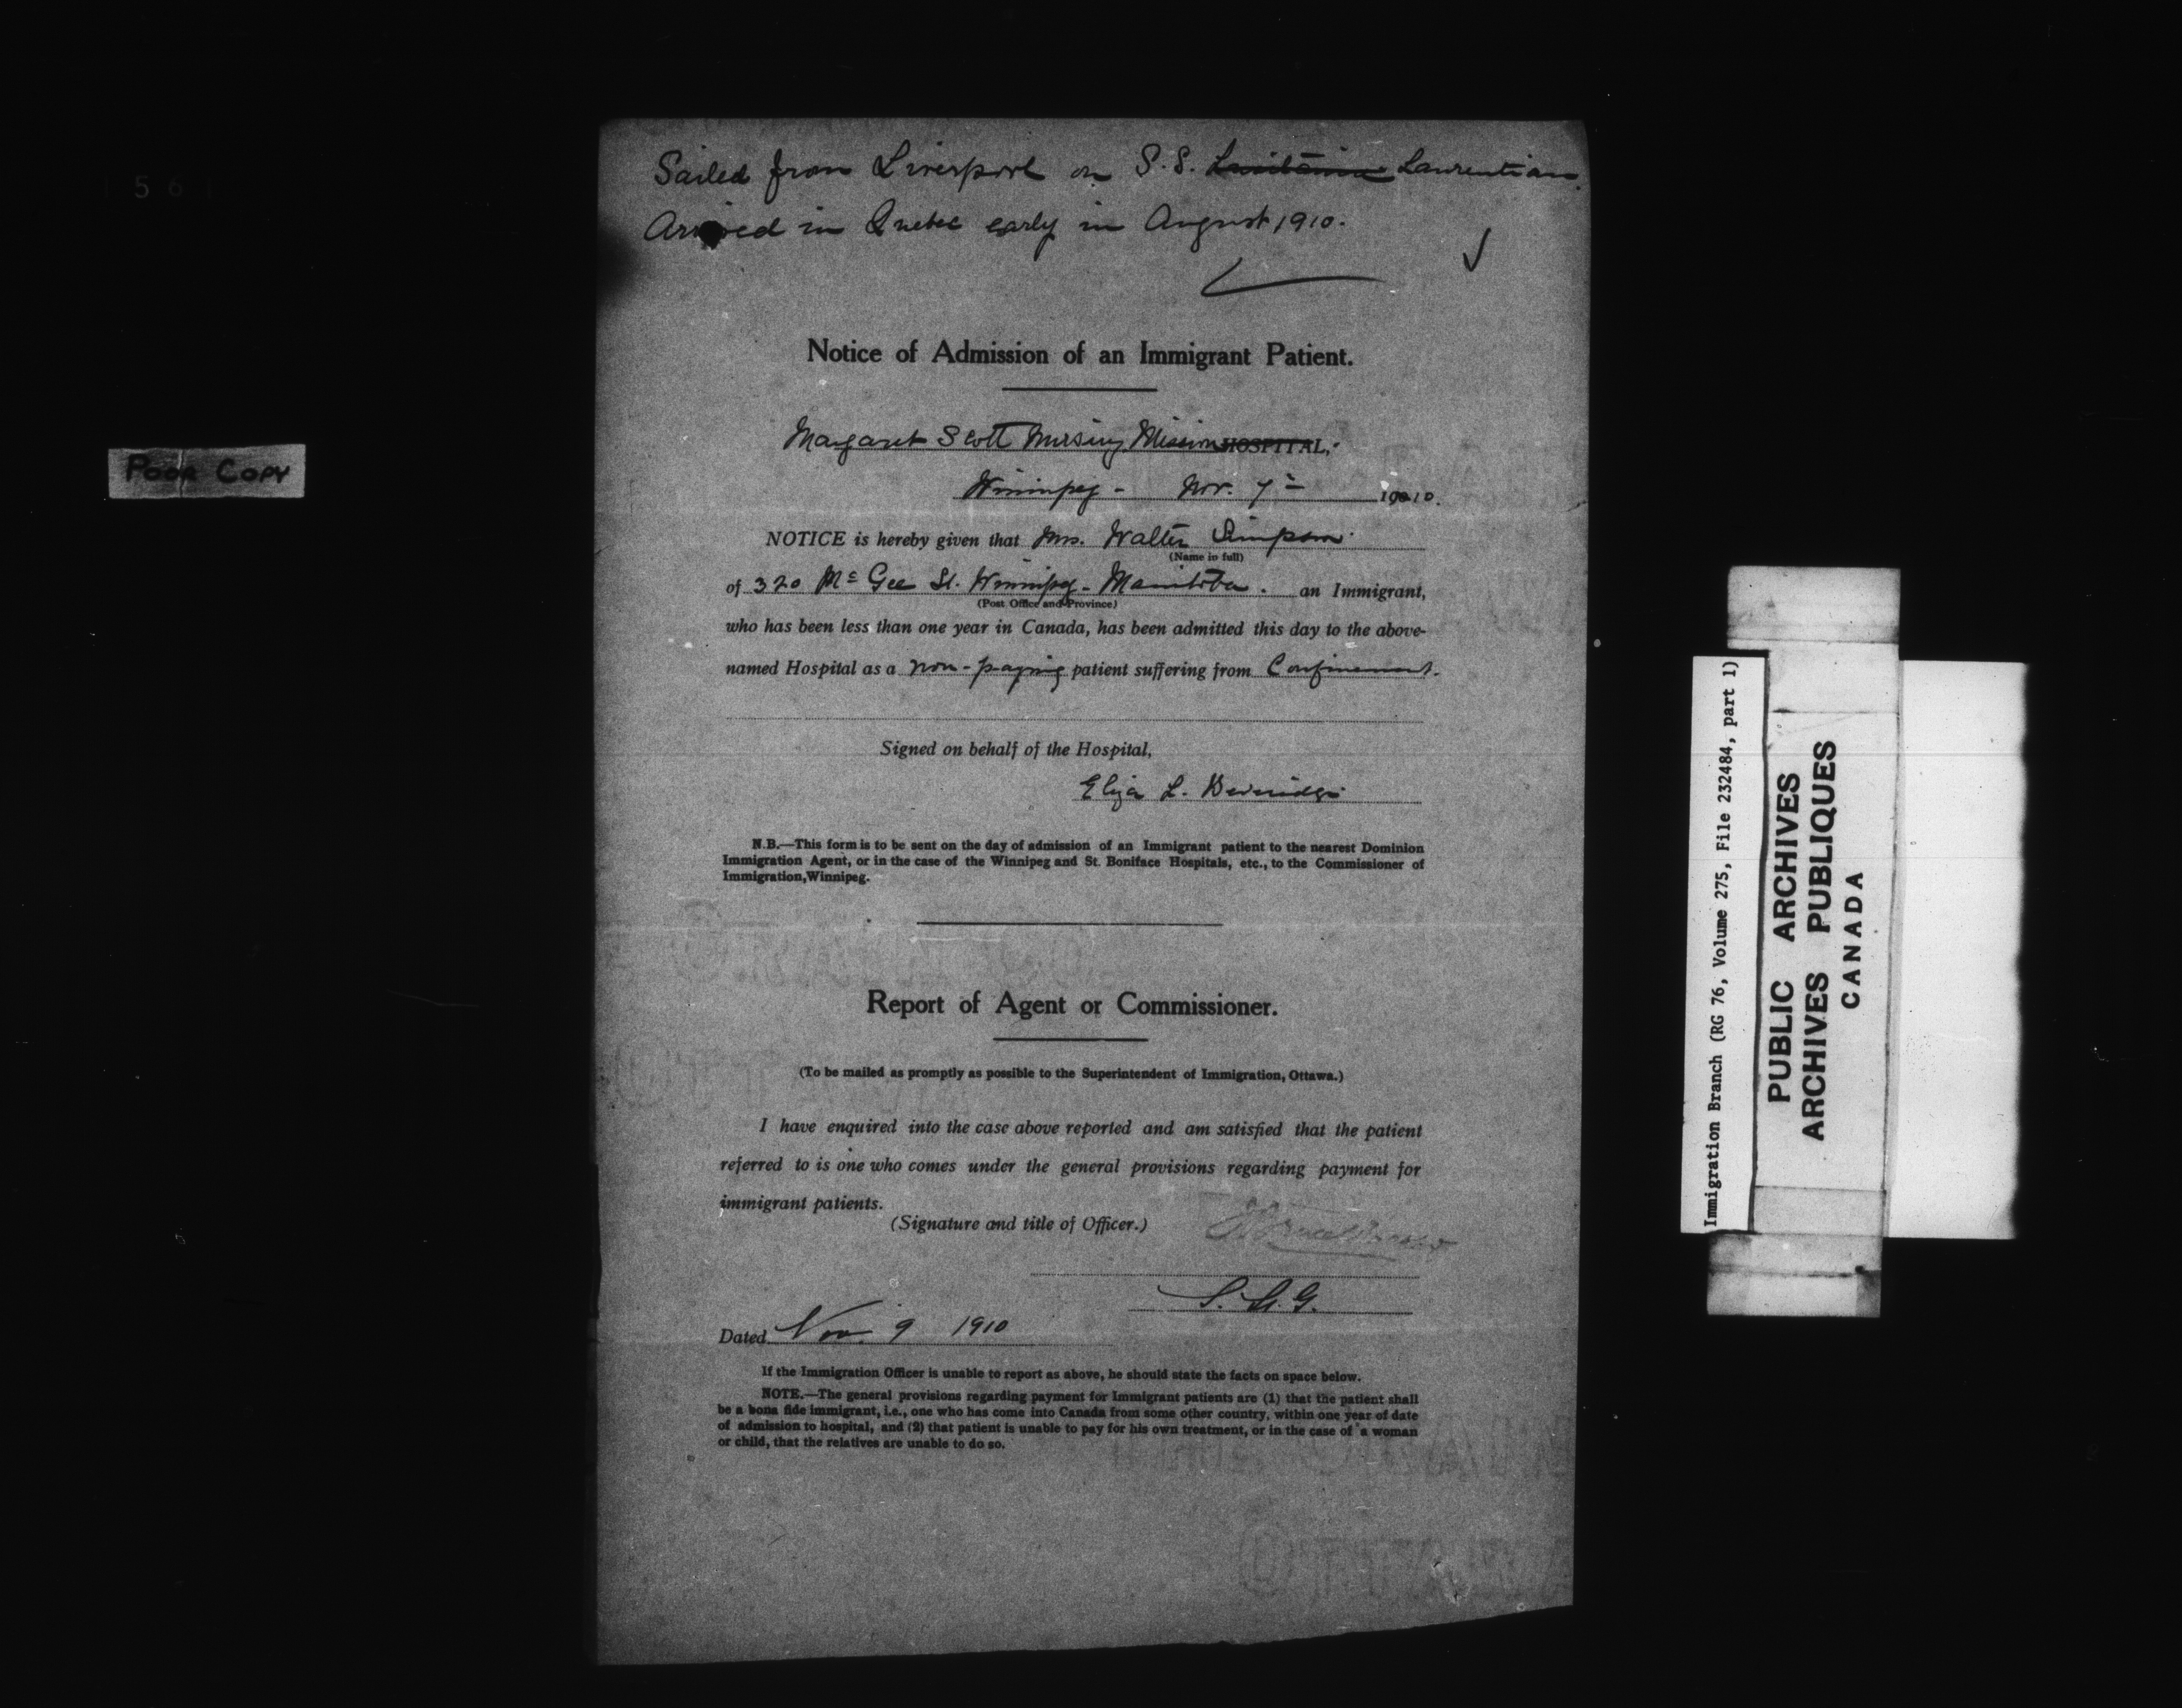 Sailed from Liverpool on S.S. Lusitania Laurentian.
Arrived in Quebec early in August 1910.
Notice of Admission of an Immigrant Patient.
Margaret Scott Nursing Mission HOSPITAL,
Winnipeg - Nov. 7th 1910.
NOTICE is hereby given that Mrs. Walter Simpson
(Name in full)
of 320 McGee St. Winnipeg - Manitoba. an Immigrant,
(Post Office and Province)
who has been less than one year in Canada, has been admitted this day to the above-
named Hospital as a non-paying patient suffering from Confinement.
Signed on behalf of the Hospital,
Eliza L. Beveridge
N.B.—This form is to be sent on the day of admission of an Immigrant patient to the nearest Dominion
Immigration Agent, or in the case of the Winnipeg and St. Boniface Hospitals, etc., to the Commissioner of
Immigration, Winnipeg.
Report of Agent or Commissioner.
(To be mailed as promptly as possible to the Superintendent of Immigration, Ottawa.)
I have enquired into the case above reported and am satisfied that the patient
referred to is one who comes under the general provisions regarding payment for
immigrant patients.
(Signature and title of Officer.)
Dated Nov. 9 1910
If the Immigration Officer is unable to report as above, he should state the facts on space below.
NOTE.—The general provisions regarding payment for Immigrant patients are (1) that the patient shall
be a bona fide immigrant, i.e., one who has come into Canada from some other country, within one year of date
of admission to hospital, and (2) that patient is unable to pay for his own treatment, or in the case of a woman
or child, that the relatives are unable to do so.
Poor Copy
561
Immigration Branch (RG 76, Volume 275, File 232484, part 1)
PUBLIC ARCHIVES
ARCHIVES PUBLIQUES
CANADA